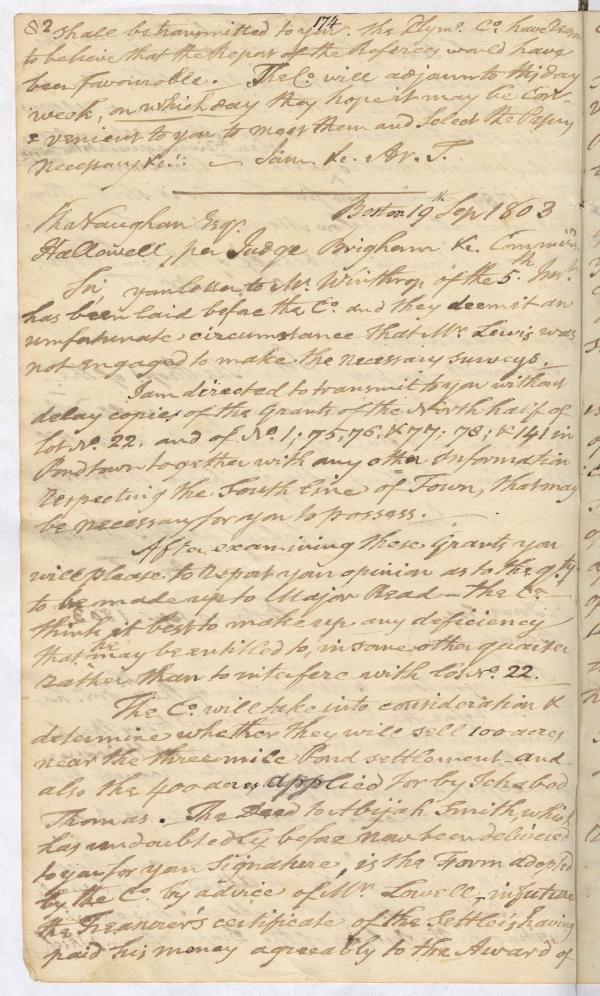 82 174
shall be transmitted to you. the Plymo. Co. have reason
to believe that the Report of the Referees would have
been favourable. The Co. will adjourn to this day
week, on which day they hope it may be Con-
venient to you to meet them and select the Papers
necessary &c. I am &c. Ar. T.
Boston 19th Sep 1803
Cha Vaughan Esqr.
Hallowell, per Judge Brigham &c. Commiss
Sir, your letter to Mr. Winthrop of the 5th. Inst.
has been laid before the Co. and they deem it an
unfortunate circumstance that Mr. Lewis was
not engaged to make the necessary surveys.
I am directed to transmit to you without
delay copies of the Grants of the North half of
lot No. 22. and of No. 1; 75, 76, & 77. 78; & 141 in
Pondtown together with any other Information
respecting the South Line of Town, that may
be necessary for you to possess.
After examining these Grants you
will please to report your opinion as to the qty.
to be made up to Major Read — the Co.
think it best to make up any deficiency
that he may be entitled to, in some other quarter
rather than to interfere with lot No. 22.
The Co. will take into consideration &
determine whether they will sell 100 acres
near the three mile Pond settlement and
also the 400 acres applied for by Ichabod
Thomas. The Deed to Abijah Smith, which
has undoubtedly before now been delivered
to you for your signature, is the Form adopted
by the Co. by advice of Mr. Lowell — in future
the Treasurer's certificate of the Settler's having
paid his money agreeably to the Award of